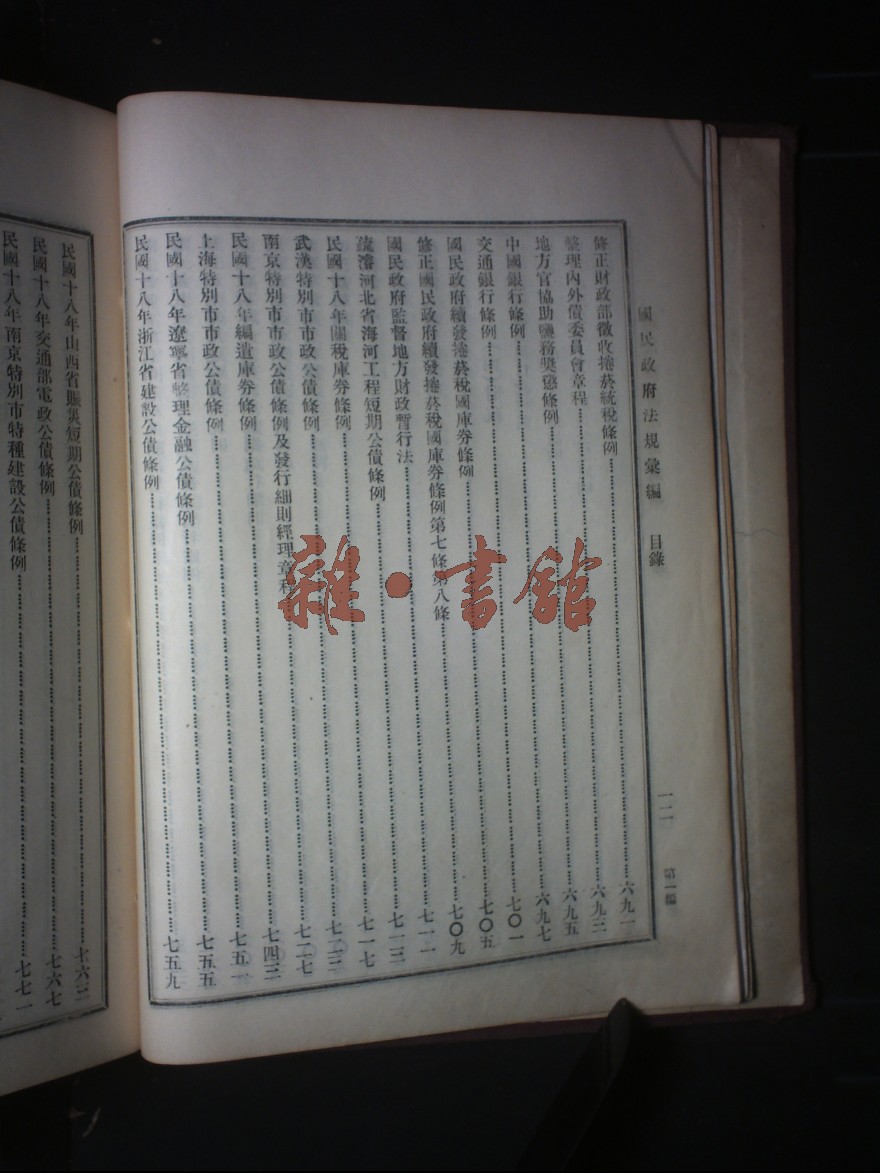 國民政府法規彙編 目錄 一二 第一編
修正財政部徵收捲菸統稅條例……六九一
整理內外債委員會章程……六九三
地方官協助鹽務獎懲條例……六九五
中國銀行條例……六九七
交通銀行條例……七〇一
國民政府續發捲菸稅國庫券條例……七〇五
修正國民政府續發捲菸稅國庫券條例第七條第八條……七〇九
國民政府監督地方財政暫行法……七一一
疏濬河北省海河工程短期公債條例……七一三
民國十八年關稅庫券條例……七一七
武漢特別市市政公債條例……七二三
南京特別市市政公債條例及發行細則經理章程……七二七
民國十八年編遣庫券條例……七四三
上海特別市市政公債條例……七五一
民國十八年遼寧省整理金融公債條例……七五五
民國十八年浙江省建設公債條例……七五九
民國十八年山西省賑災短期公債條例……七六三
民國十八年交通部電政公債條例……七六七
民國十八年南京特別市特種建設公債條例……七七一
雜·書館